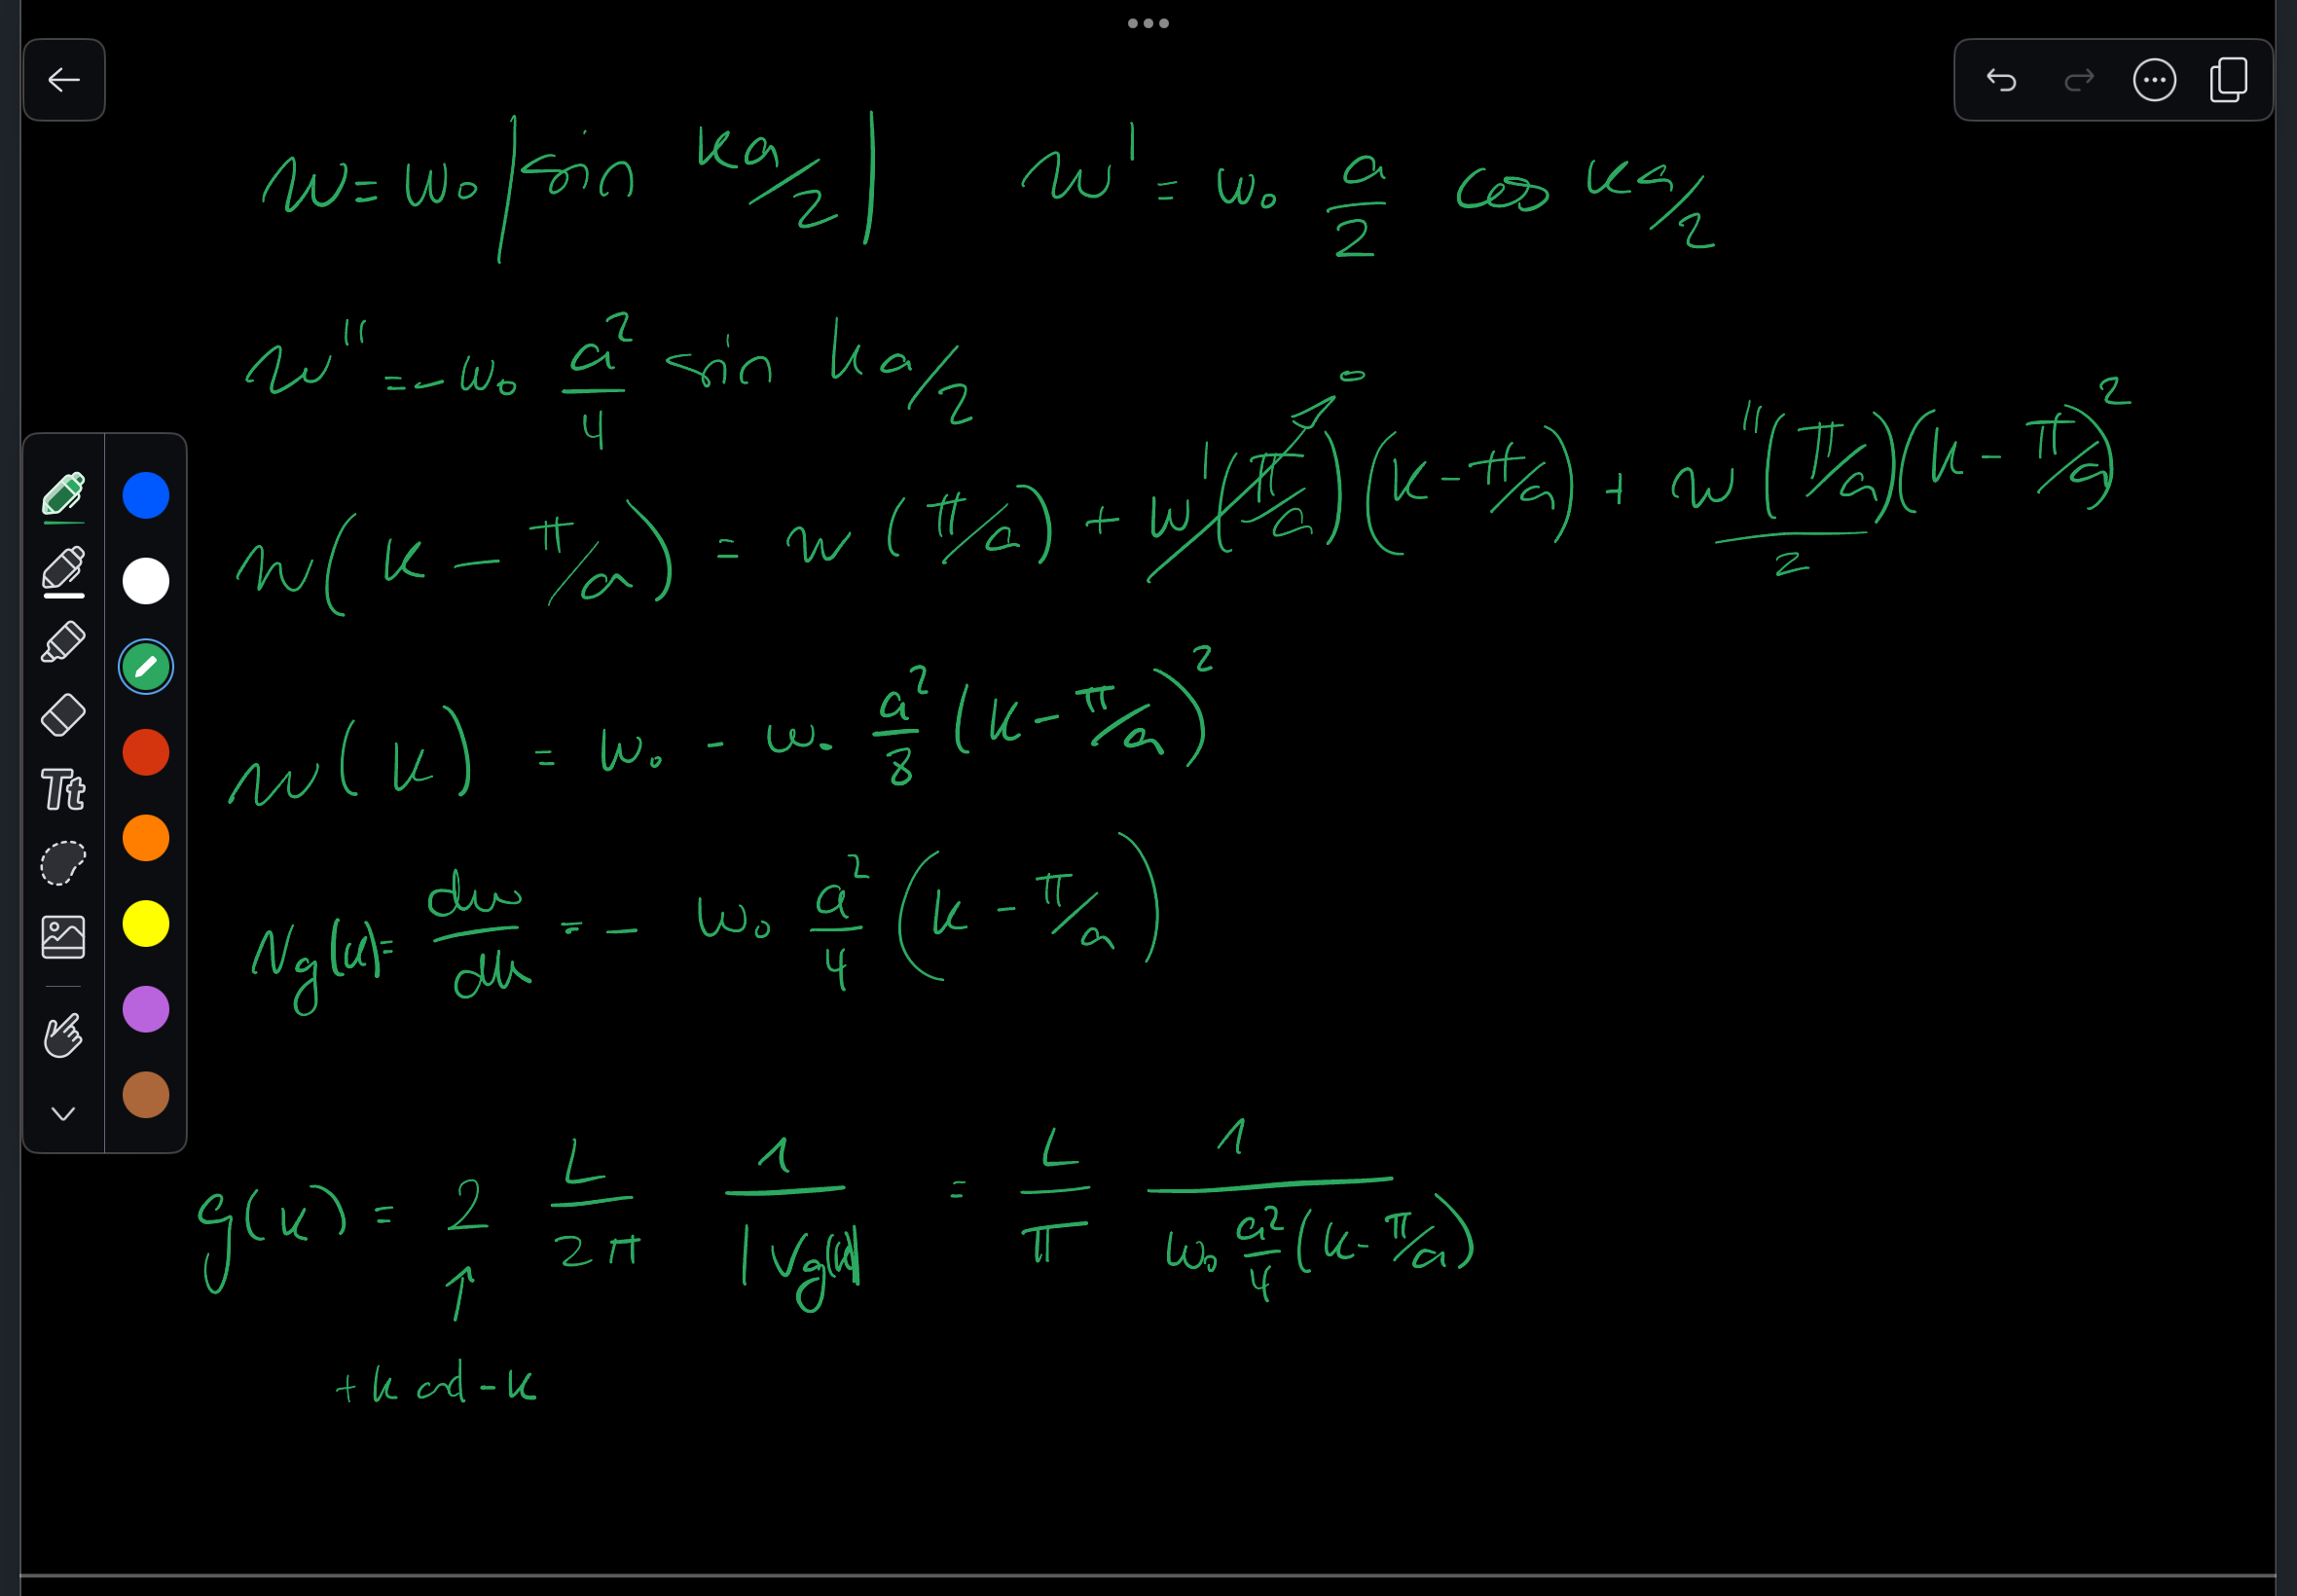 w = w₀ |sin ka/2|   w' = w₀ a/2 cos ka/2
w'' = - w₀ a²/4 sin ka/2
w(k - π/a) = w(π/a) + w'(π/a)(k - π/a) + w''(π/a)/2 (k - π/a)²
0
w(k) = w₀ - w₀ a²/8 (k - π/a)²
Vg(k) = dw/dk = - w₀ a²/4 (k - π/a)
g(k) = 2 L/2π 1/|Vg(k)| = L/π 1/(w₀ a²/4 (k - π/a))
↑
+k and -k
Tt